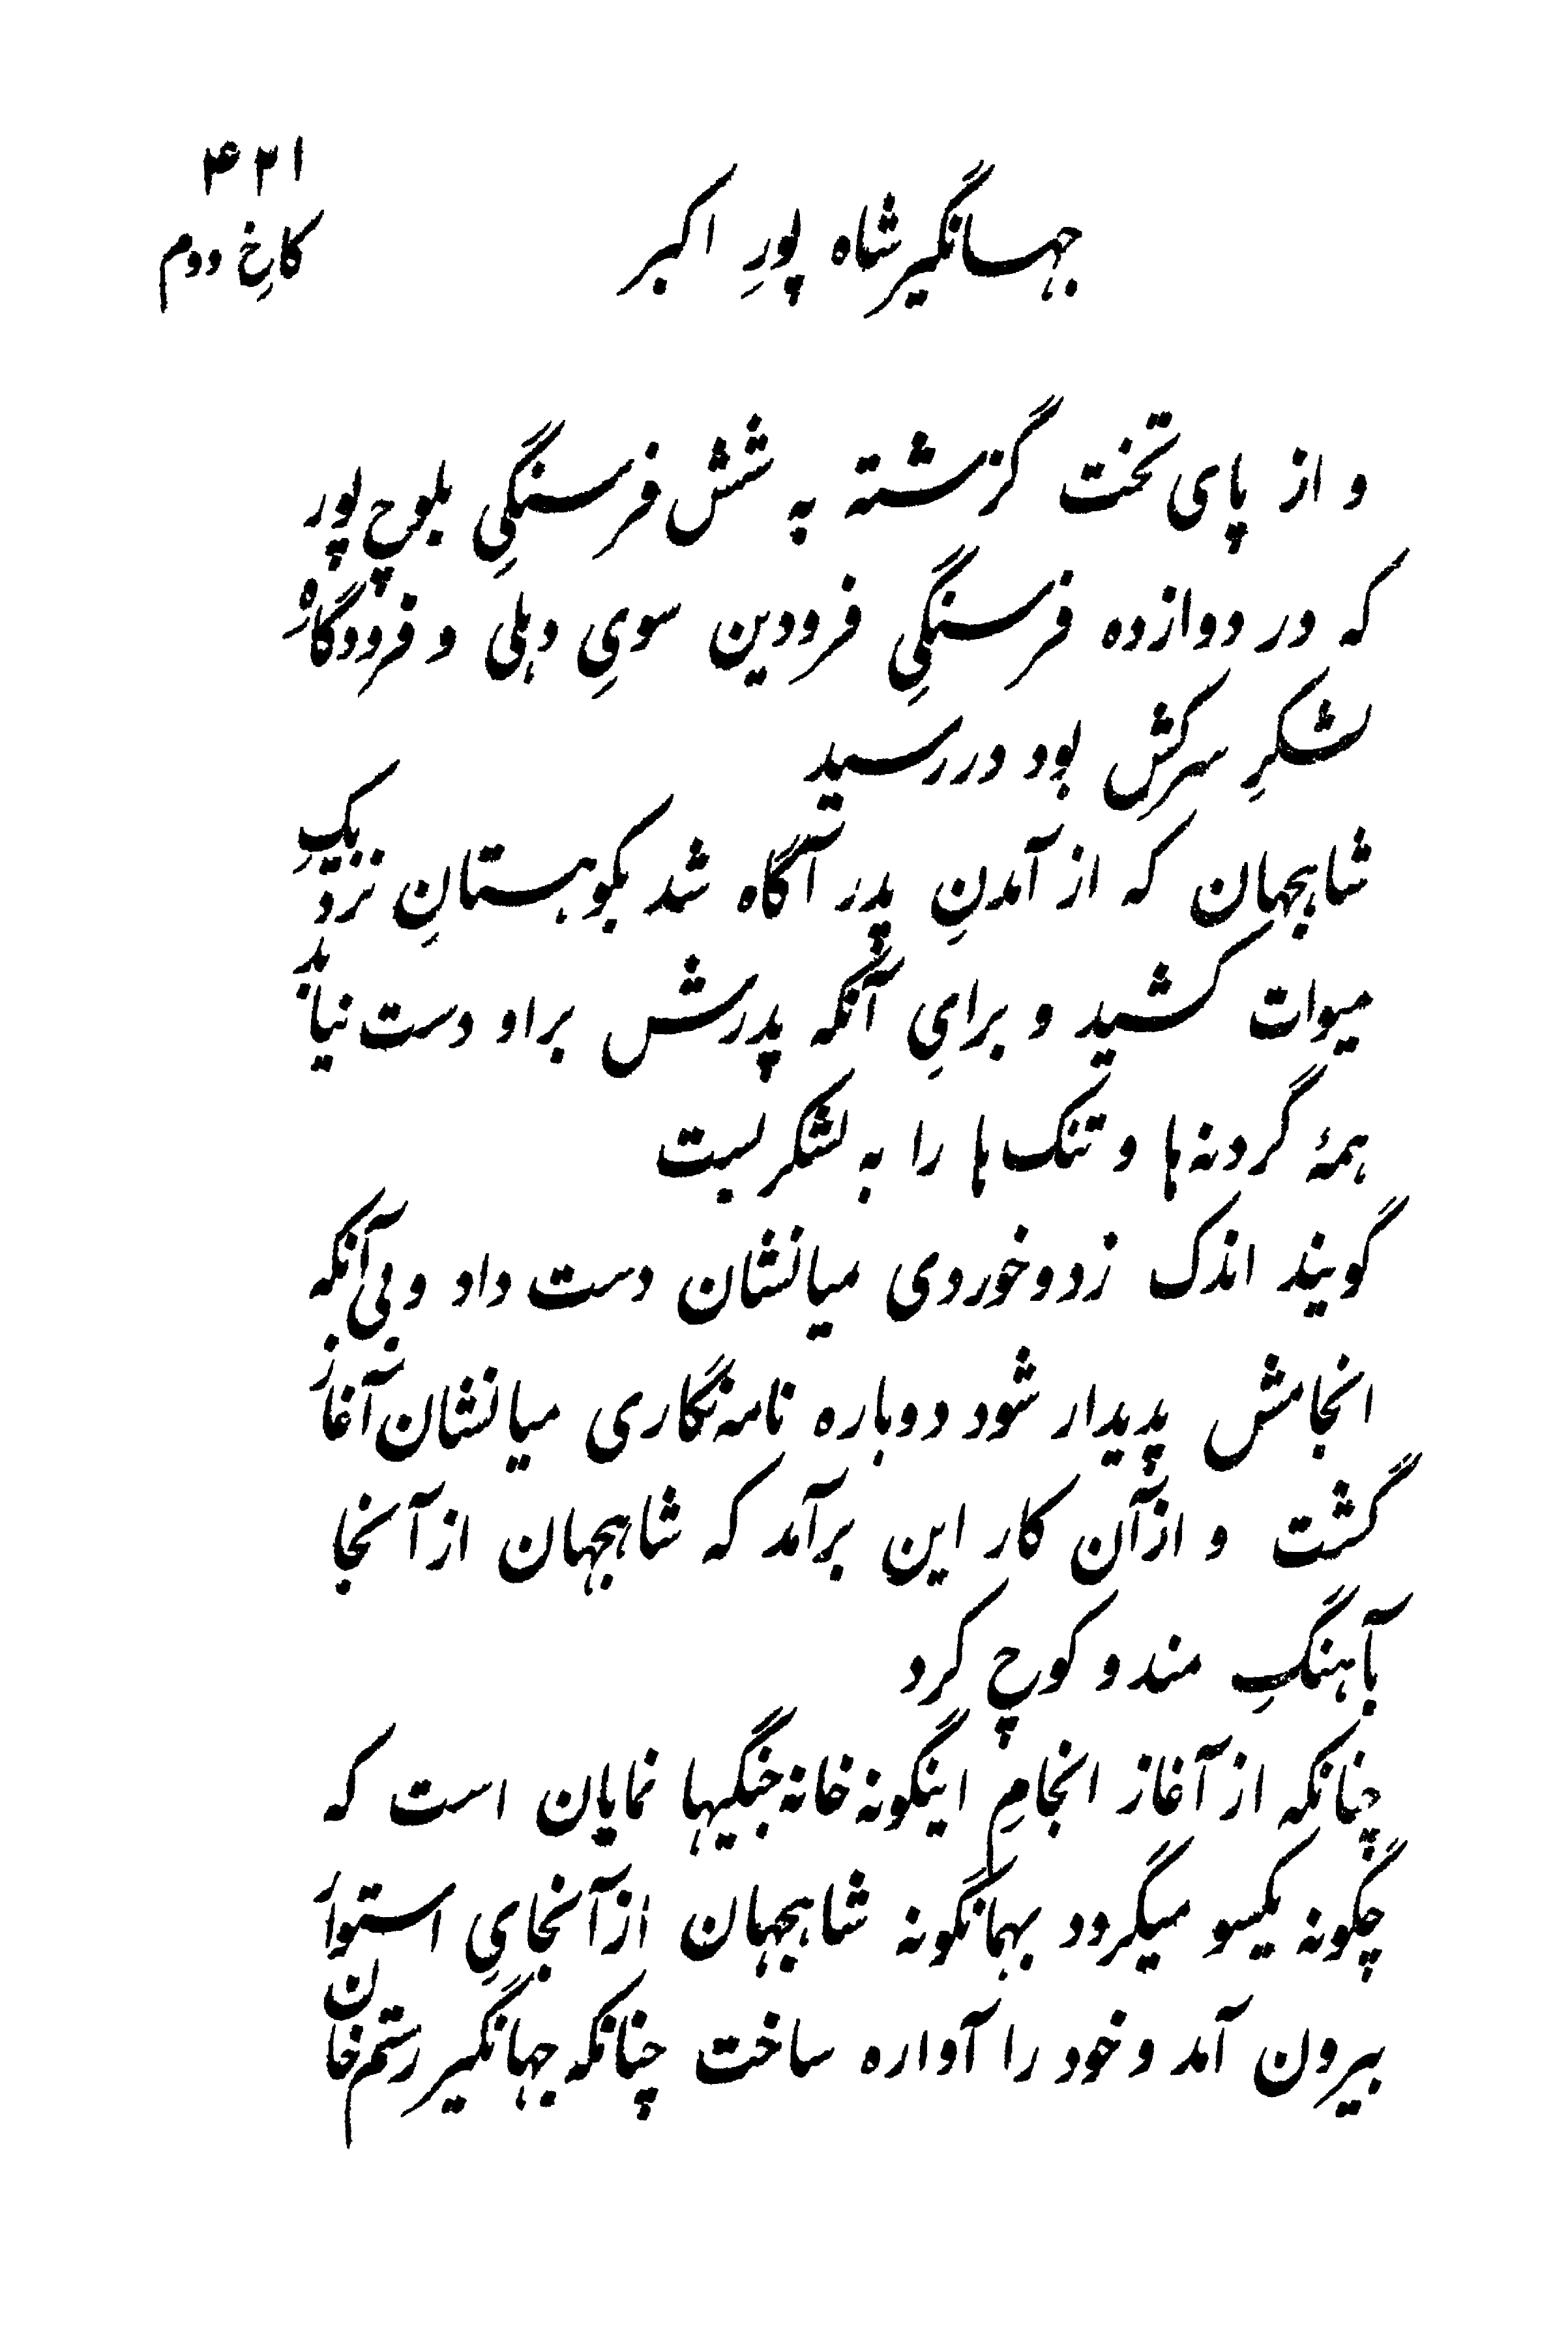 ۴۲۱
کاخِ دوم
جهانگیر شاه پورِ اکبر
و از پای تخت گزشته به شش فرسنگیِ بلوچ پور
که در دوازده فرسنگیِ فرودین سویِ دهلی و فرودگاهِ
لشکرِ سرکش بود در رسید
شاهجهان که از آمدنِ پدر آگاه شد بکوهستانِ نزدیکِ
میوات کشید و برایِ آنکه پدرش بر او دست نیابد
همهٔ گردنه‌ها و تنگ‌ها را به لشکر بست
گویند اندک زد و خوردی میانشان دست داد و بی‌آنکه
انجامش پدیدار شود دوباره نامه‌نگاری میانشان آغاز
گشت و از آن کار این برآمد که شاهجهان از آنجا
بآهنگِ مندو کوچ کرد
چنانکه از آغاز انجامِ اینگونه خانه جنگیها نمایان است که
چگونه یکسو میگردد بهمانگونه شاهجهان از آنجایِ استوار
بیرون آمد و خود را آواره ساخت چنانکه جهانگیر رستم خان